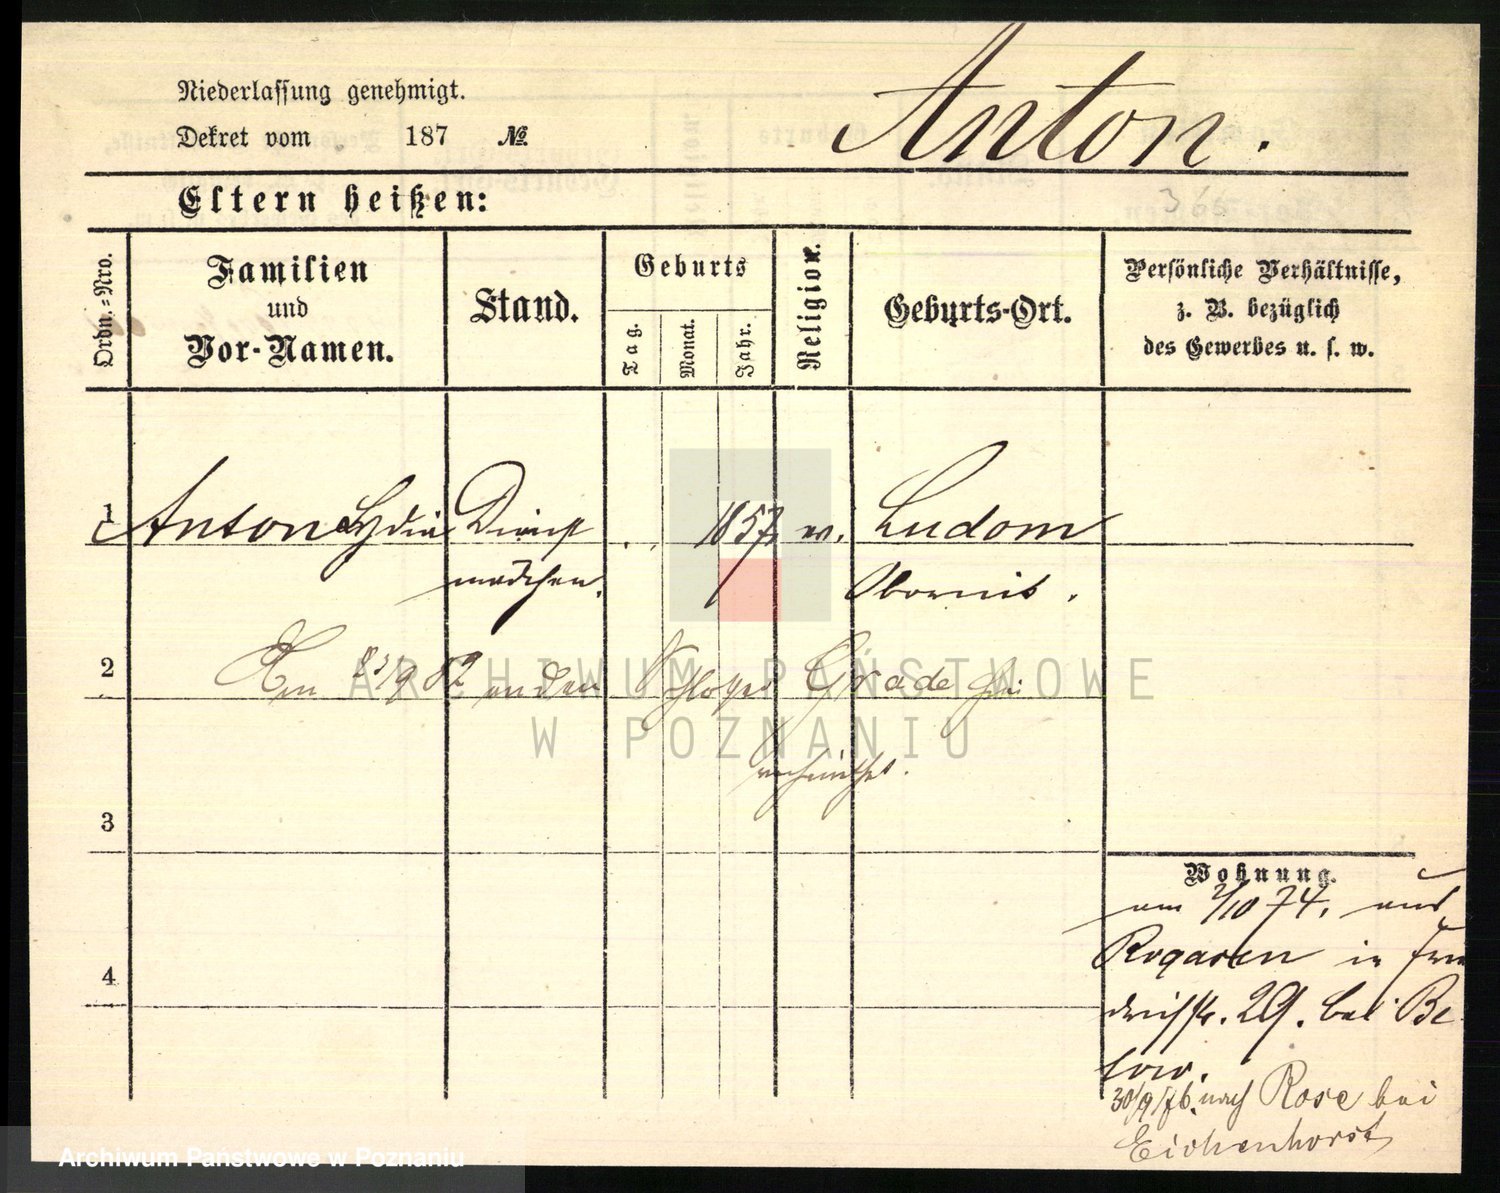 Niederlassung genehmigt.
Dekret vom 187 №
Anton.
Eltern heißen:
Ordn.-Nro.
Familien
und
Vor-Namen.
Stand.
Geburts
Tag.
Monat.
Jahr.
Religion.
Geburts-Ort.
Persönliche Verhältnisse,
z. B. bezüglich
des Gewerbes u. s. w.
1 Anton Lydia Dienst 1857 ev. Ludom
mädchen. Obornik.
2 Am 23/9 82 an den Grade hei
3
4
Wohnung.
am 2/10 74. aus
Rogasen in Frie
drichstr. 29. bei Be
low.
30/9/76. nach Rose bei
Eichenhorst
ARCHIWUM PAŃSTWOWE
W POZNANIU
Archiwum Państwowe w Poznaniu